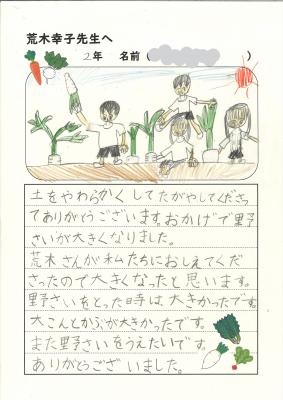 荒木幸子先生へ
2年 名前( )
土をやわらかくしてたがやしてくださっ
てありがとうございます。おかげで野
さいが大きくなりました。
荒木さんが私たちにおしえてくだ
さったので大きくなったと思います。
野さいをとった時は大きかったです。
大こんとかぶが大きかったです。
また野さいをうえたいです。
ありがとうございました。